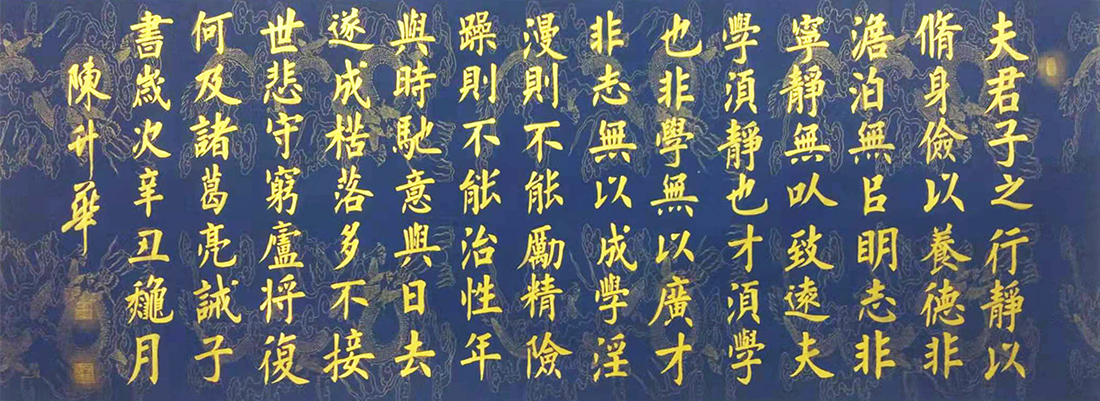 夫君子之行靜以
脩身儉以養德非
澹泊無㠯明志非
寧靜無㕥致遠夫
學湏靜也才湏學
也非學無以廣才
非志無以成學淫
漫則不能勵精險
躁則不能治性年
與時馳意與日去
遂成枯落多不接
世悲守窮廬將復
何及諸葛亮誡子
書歲次辛丑龝月
陳升華